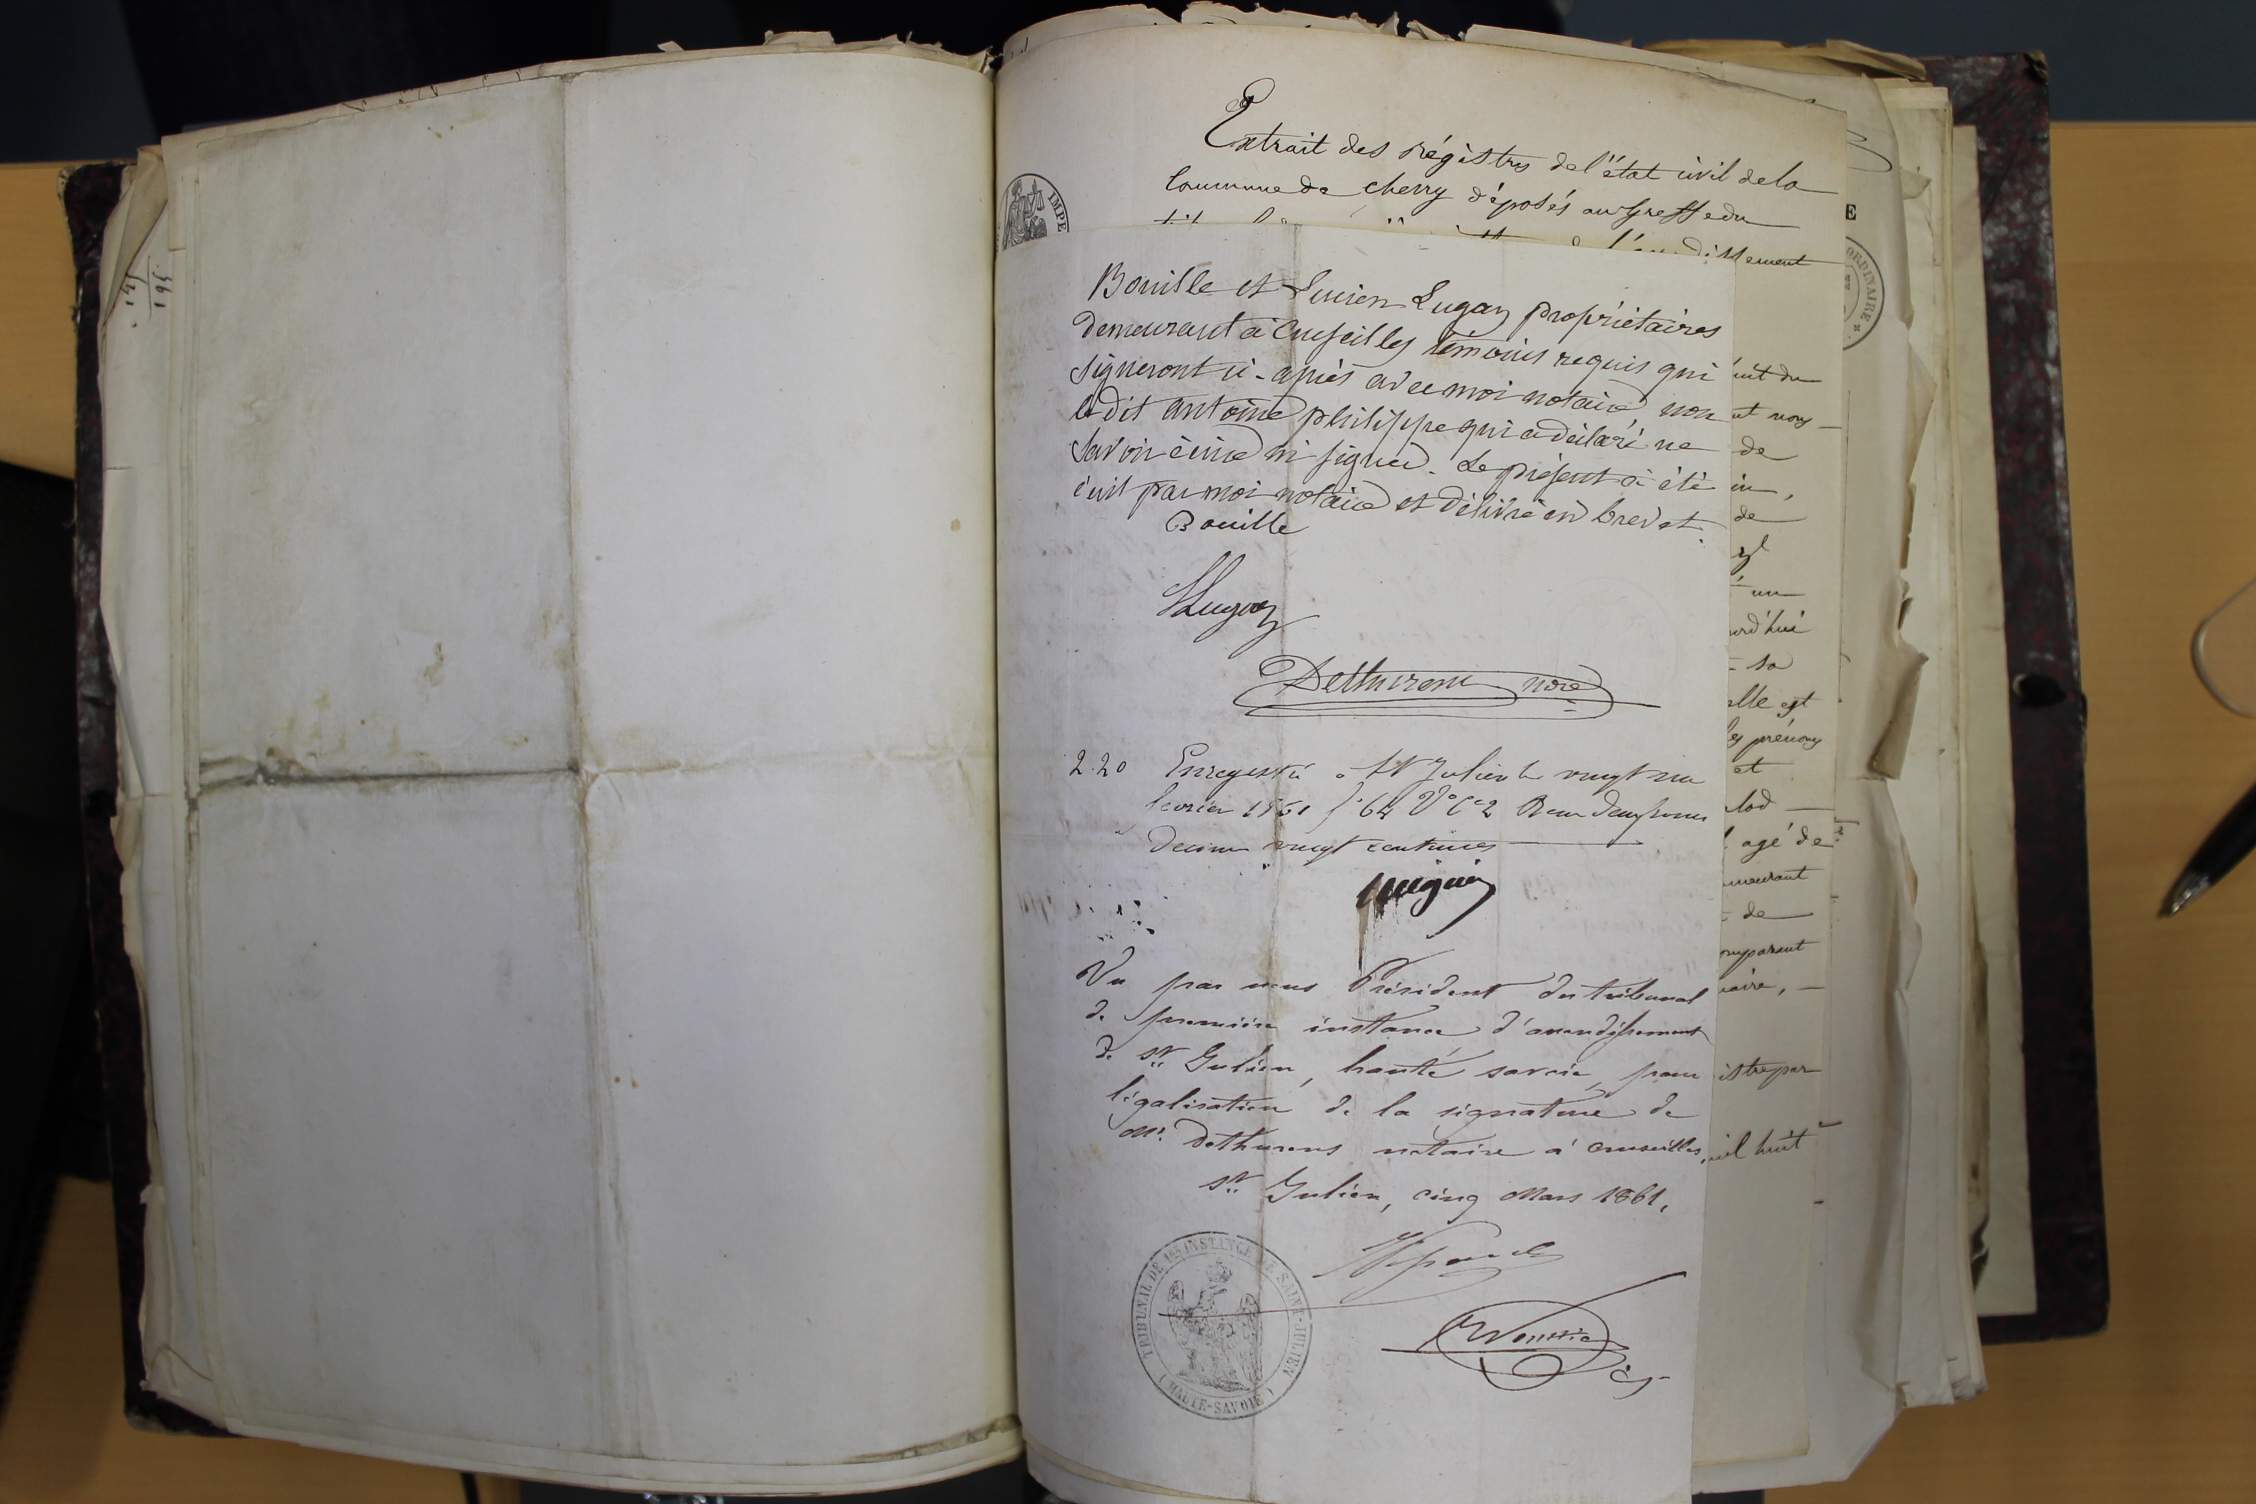 Extrait des régistres de l'état civil de la
Commune de cherry déposés au Greffe du
l'arrondissement
IMPE
E
ORDINAIRE
Bouille et Lucien Lugaz propriétaires
demeurant à Cruseilles témoins requis qui
signeront ci-après avec moi notaire non
ledit antoine philippe qui a déclaré ne
savoir écrire ni signer. Le présent a été
écrit par moi notaire et délivré en brevet.
Bouille
LLugaz
Dethurens nore
2.20 Enregistré à St Julien le vingt un
fevrier 1861 fo 64 Vo Ce 2 Recu deux francs
Decime vingt centimes
Vu par nous Président du tribunal
de première instance d'arrondissement
de St Julien, haute savoie, pour
légalisation de la signature de
Mr. Dethurens notaire à cruseilles,
St Julien, cinq Mars 1861.
TRIBUNAL DE 1ere INSTANCE DE SAINT-JULIEN
( HAUTE-SAVOIE )
uit du
nt nous
de
in,
de
un
ourd'hui
sa
elle est
les prénoms
et
lod
agé de
meurant
de
omparant
naire,
istre par
mil huit